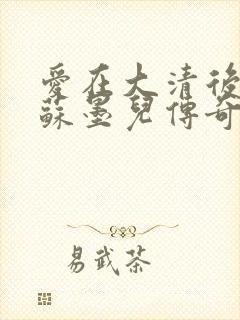 愛在大清後
蘇墨兒傳奇
易武茶